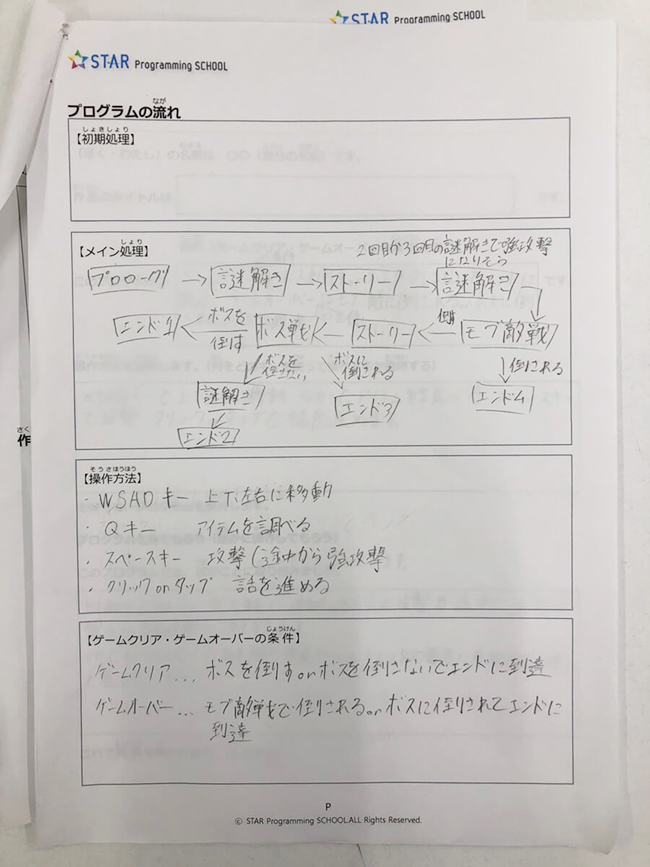 STAR Programming SCHOOL
STAR Programming SCHOOL
プログラムの流れ
【初期処理】
【メイン処理】
2回目か3回目の謎解きで強攻撃
になりそう
プロローグ → 謎解き → ストーリー → 謎解き
エンド1 ← ボスを倒す ボス戦 ← ストーリー ← 倒す モブ敵戦
ボスを倒さない ボスに倒される 倒される
謎解き エンド3 エンド4
エンド2
【操作方法】
・WSADキー 上下左右に移動
・Qキー アイテムを調べる
・スペースキー 攻撃(途中から強攻撃
・クリックorタップ 話を進める
【ゲームクリア・ゲームオーバーの条件】
ゲームクリア... ボスを倒すorボスを倒さないでエンドに到達
ゲームオーバー... モブ敵戦で倒されるorボスに倒されてエンドに
到達
P
© STAR Programming SCHOOL.ALL Rights Reserved.
作